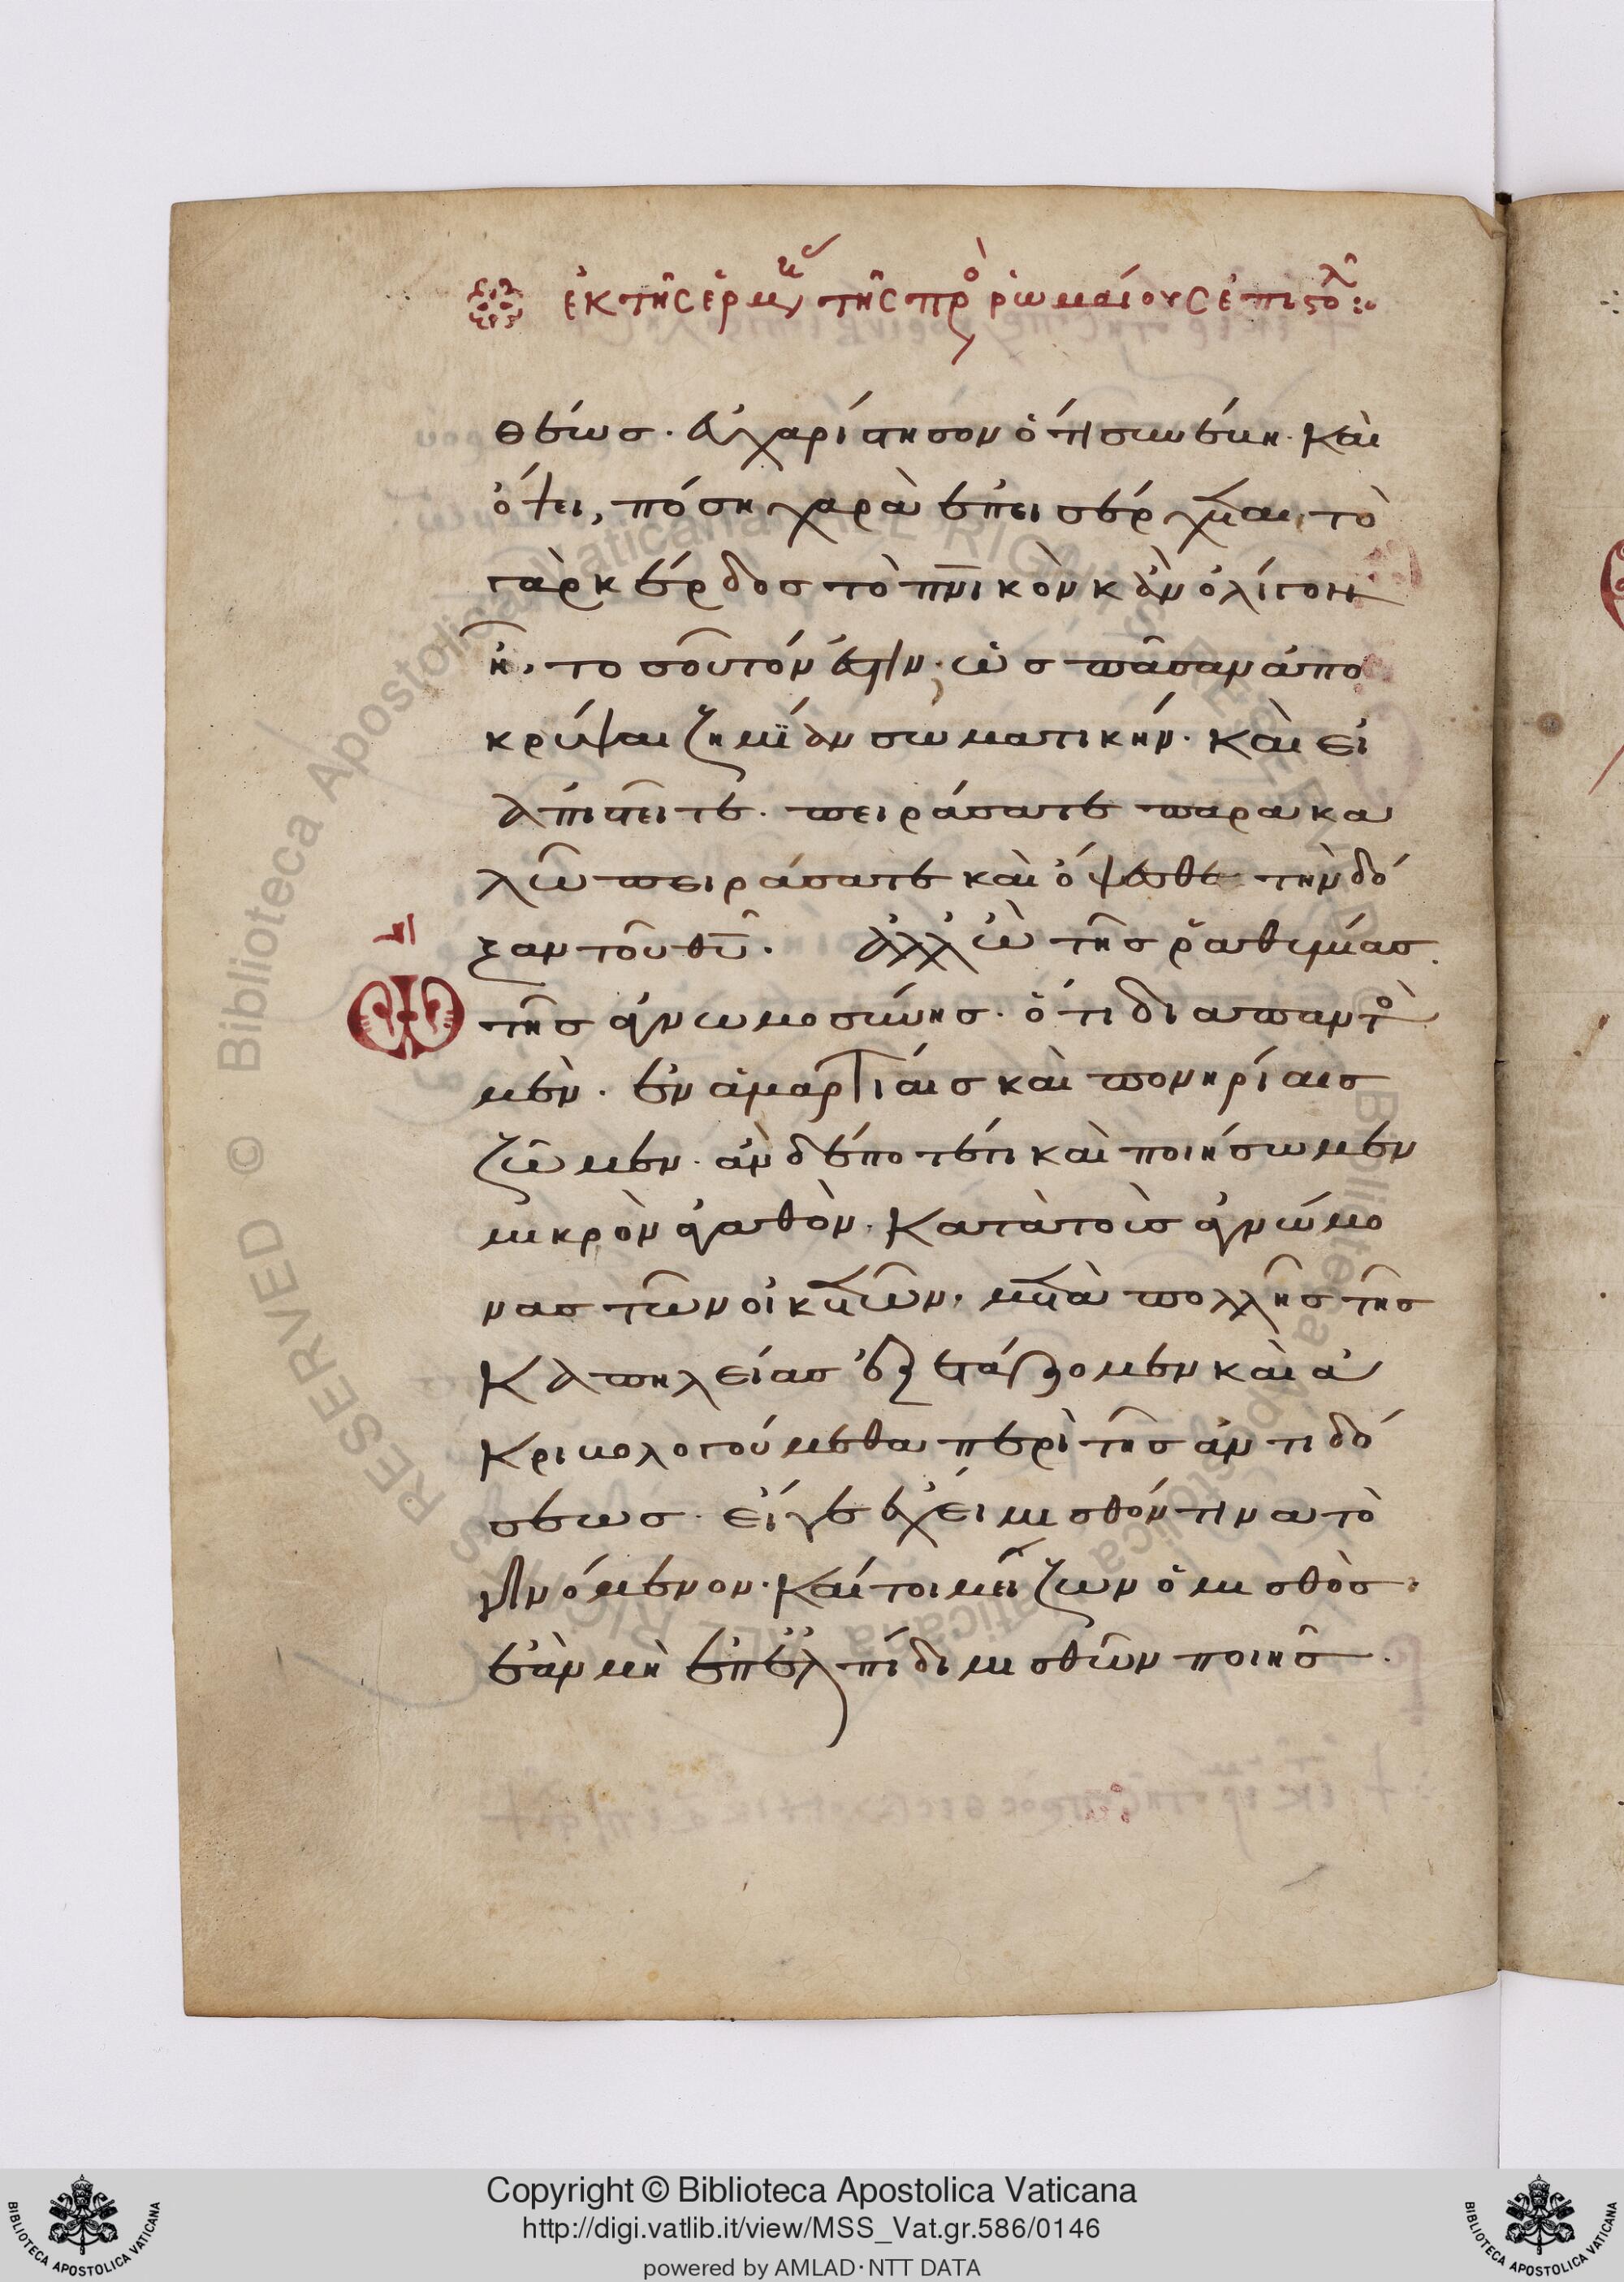 ἐκ τῆς ἑρμ τῆς πρ ῥωμαίους ἐπιστολ
θέως. εὐχαρίστησον ὅτι συνέστη. καὶ
ὄψει, πόση χαρὰ ἐπεισέρχεται. τὸ
γὰρ κέρδος τὸ πνικὸν κἂν ὀλίγον
ἦ, τοσοῦτόν ἐστιν· ὡς πᾶσαν ἀπο
κρύψαι ζημΐαν σωματικήν. καὶ εἰ
ἀπιστεῖτε. πειράσατε παρακα
λῶ πειράσατε καὶ ὄψεσθε τὴν δό
ξαν τοῦ θῦ. ἀλλ ὢ τῆς ῥαθυμίας.
τῆς ἀγνωμοσύνης. ὅτι διαπαντὸ
μὲν. ἐν ἁμαρτίαις καὶ πονηρίαις
ζῶμεν. ἂν δέ ποτέ τι καὶ ποιήσωμεν
μικρὸν ἀγαθὸν. κατὰ τοὺς ἀγνώμο
νας τῶν οἰκετῶν. μετὰ πολλῆς τῆς
καπηλείας ἐξετάζομεν καὶ ἀ
κριβολογούμεθα περὶ τῆς ἀντιδό
σεως. εἴγε ἔχει μισθόν τινα τὸ
γινόμενον. καίτοι μείζων ὁ μισθὸς
ἐὰν μὴ ἐπ ἐλπίδι μισθῶν ποιῆσ.
Copyright © Biblioteca Apostolica Vaticana
http://digi.vatlib.it/view/MSS_Vat.gr.586/0146
powered by AMLAD·NTT DATA